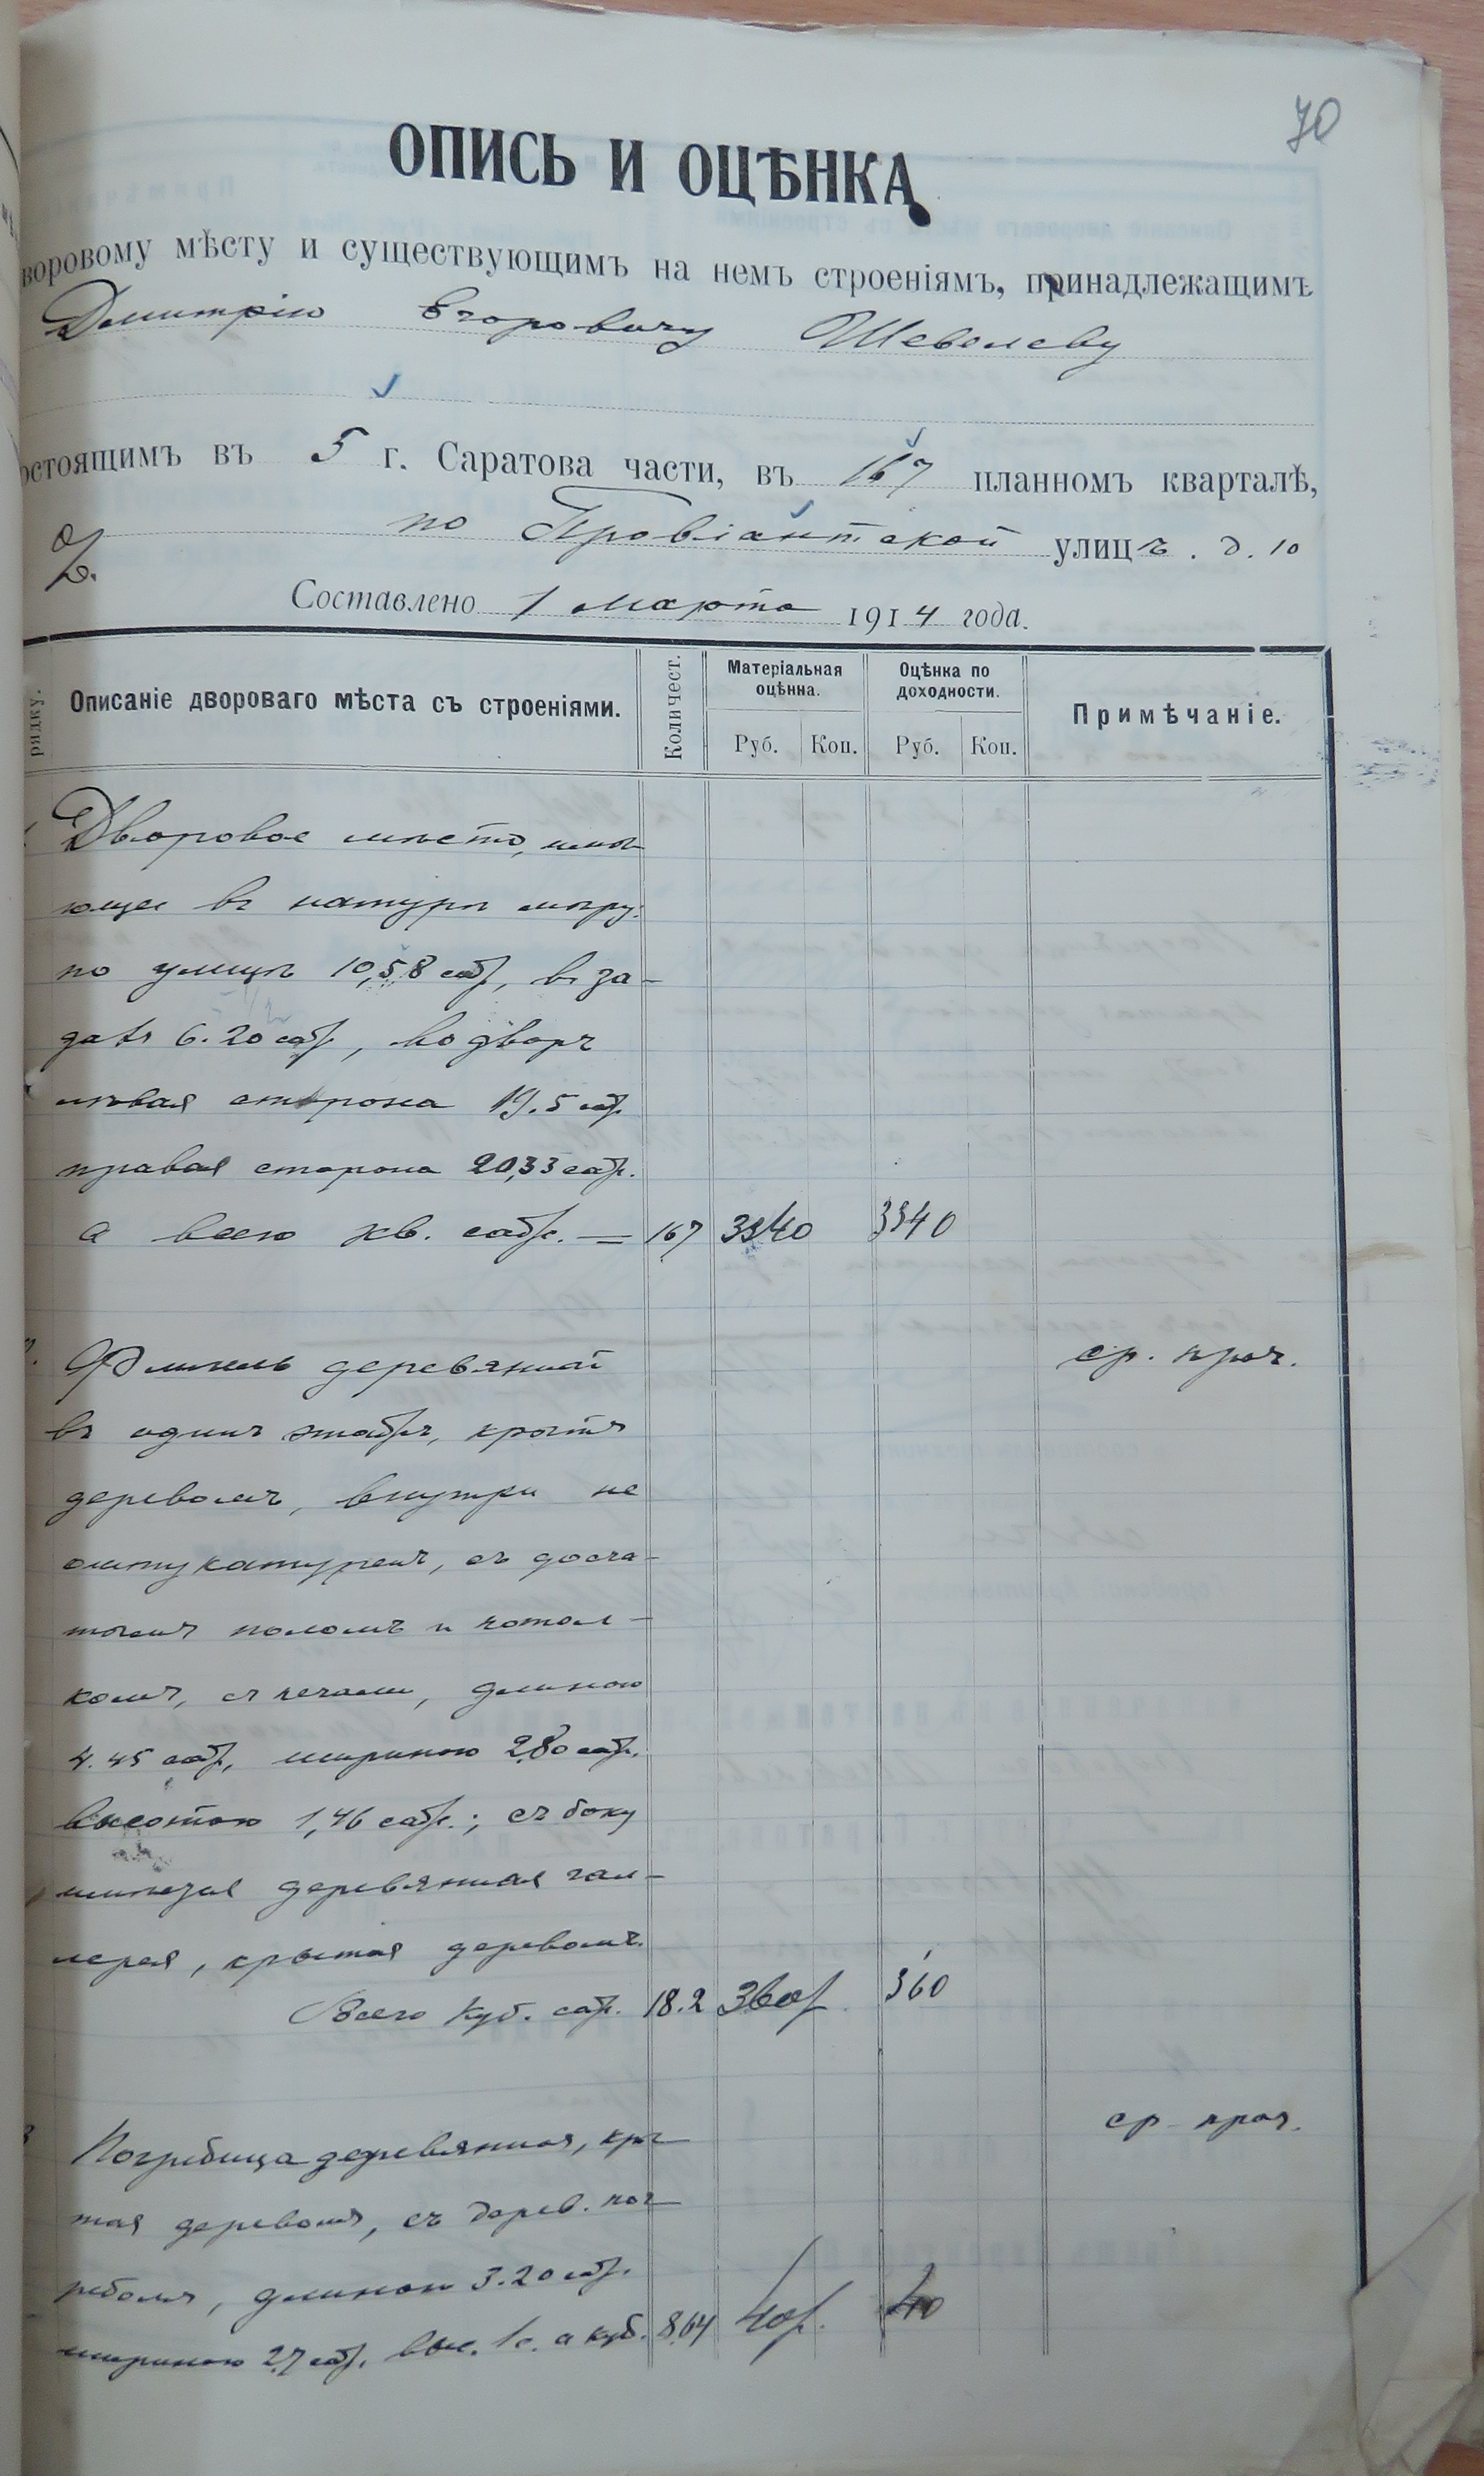 70
ОПИСЬ И ОЦѢНКА
воровому мѣсту и существующимъ на немъ строеніямъ, принадлежащимъ
Дмитрію Егоровичу Шевелеву
остоящимъ въ 5 г. Саратова части, въ 167 планномъ кварталѣ,
по Провіантской улицѣ. д. 10
Составлено 1 марта 1914 года.
рядку. Описаніе двороваго мѣста съ строеніями. Количест. Матеріальная оцѣнка. Оцѣнка по доходности. Примѣчаніе.
Руб. Коп. Руб. Коп.
Дворовое мѣсто, имѣ-
ющее въ натурѣ мѣру:
по улицѣ 10,58 саж, въ за-
дахъ 6.20 саж, во дворѣ
лѣвая сторона 19.5 саж
правая сторона 20,33 саж.
а всего кв. саж. — 167 3340 3340
Флигель деревянный ср. проч.
въ одинъ этажъ, крытъ
деревомъ, внутри не
оштукатуренъ, съ досча-
тымъ поломъ и потол-
комъ, съ печами, длиною
4.45 саж, шириною 2,80 саж.
высотою 1,46 саж.; съ боку
имѣется деревянная гал-
лерея, крытая деревомъ.
Всего куб. саж. 18.2 360р 360
3 Погребица деревянная, кры- ср проч.
тая деревомъ, съ дерев. пог-
ребомъ, длиною 3.20 саж.
шириною 2,7 саж. выс. 1с. а куб. 8.64 40р. 40